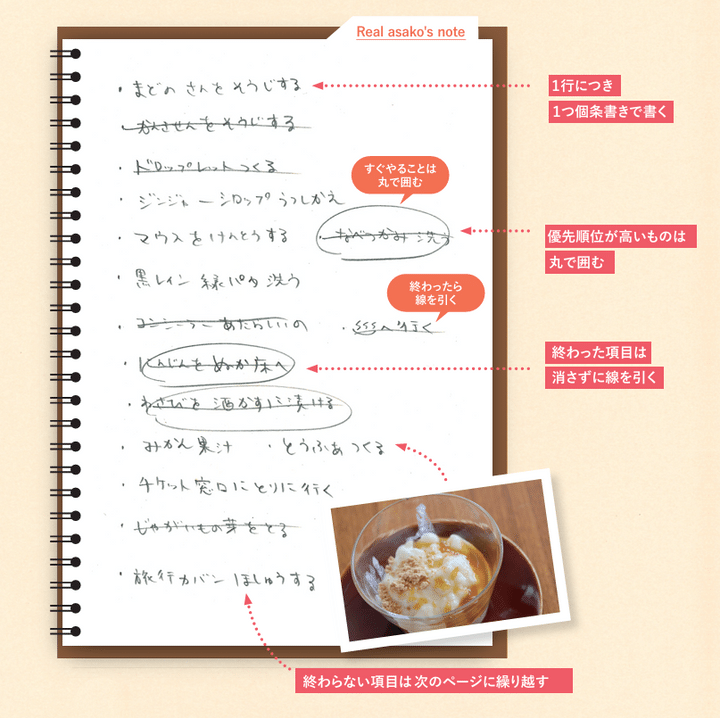 Real asako's note
・まどの さんを そうじする
1行につき
1つ個条書きで書く
・かんきせんをそうじする
・ドロップレットつくる
すぐやることは
丸で囲む
・ジンジャーシロップ うつしかえ
・マウスをけんとうする ・なべつかみ 洗う
優先順位が高いものは
丸で囲む
・黒レイン 緑パタ 洗う
終わったら
線を引く
・コンシーラー あたらしいの ・SSSへ行く
終わった項目は
消さずに線を引く
・にんじんを ぬか床へ
・わさびを 酒かすに漬ける
・みかん果汁 ・とうふぁつくる
・チケット窓口にとりに行く
・じゃがいもの芽をとる
・旅行カバン ほしゅうする
終わらない項目は次のページに繰り越す